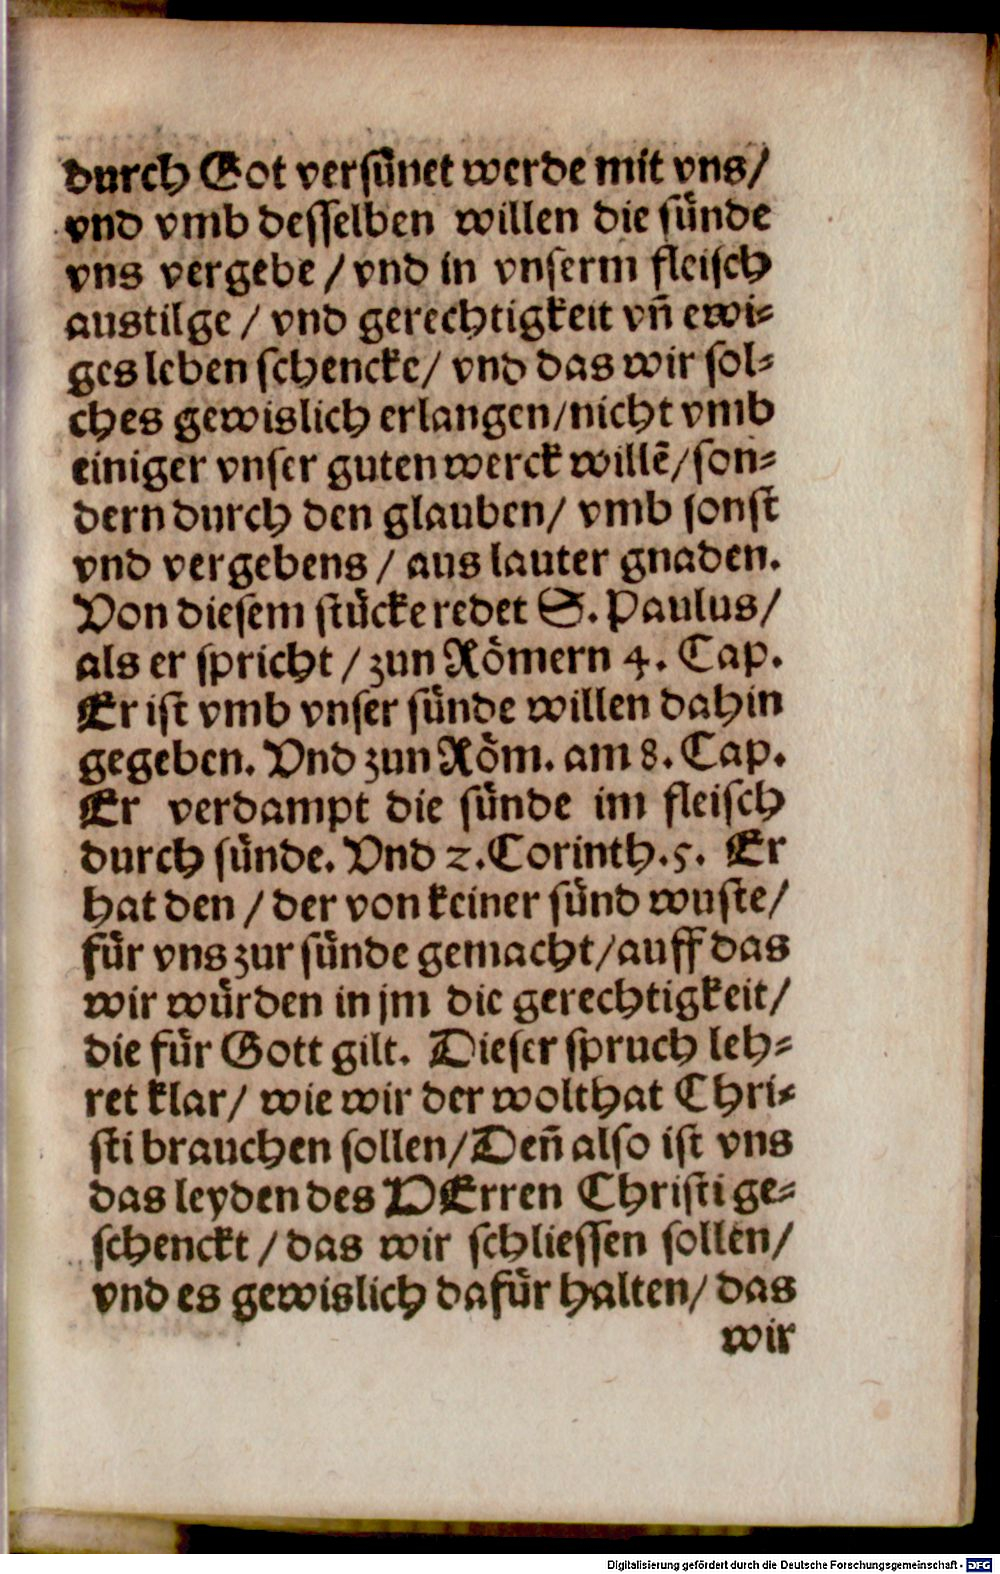 durch Got versünet werde mit vns/
vnd vmb desselben willen die sünde
vns vergebe / vnd in vnserm fleisch
austilge / vnd gerechtigkeit vñ ewi-
ges leben schencke/ vnd das wir sol-
ches gewislich erlangen/nicht vmb
einiger vnser guten werck willẽ/son-
dern durch den glauben/ vmb sonst
vnd vergebens / aus lauter gnaden.
Von diesem stücke redet S. Paulus/
als er spricht / zun Römern 4. Cap.
Er ist vmb vnser sünde willen dahin
gegeben. Vnd zun Röm. am 8. Cap.
Er verdampt die sünde im fleisch
durch sünde. Vnd 2.Corinth.5. Er
hat den / der von keiner sünd wuste/
für vns zur sünde gemacht/auff das
wir würden in jm die gerechtigkeit/
die für Gott gilt. Dieser spruch leh-
ret klar/ wie wir der wolthat Chri-
sti brauchen sollen/Deñ also ist vns
das leyden des HErren Christi ge-
schenckt / das wir schliessen sollen/
vnd es gewislich dafür halten/ das
wir
Digitalisierung gefördert durch die Deutsche Forschungsgemeinschaft - DFG